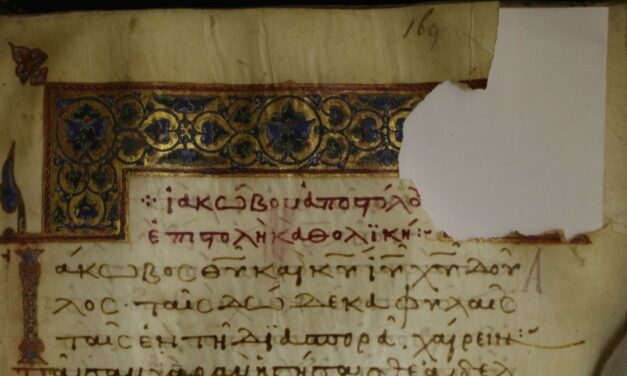 169
·:· ἰακώβου ἀποστόλο
ἐπιστολὴ καθολϊκή :·
Ἰάκωβος θ̅υ̅ καὶ κ̅υ̅ ἰ̅υ̅ χ̅υ̅ δοῦ
λος· ταῖς δώδεκα φυλαῖς
ταῖς ἐν τῆ διασπορᾶ, χαίρειν: